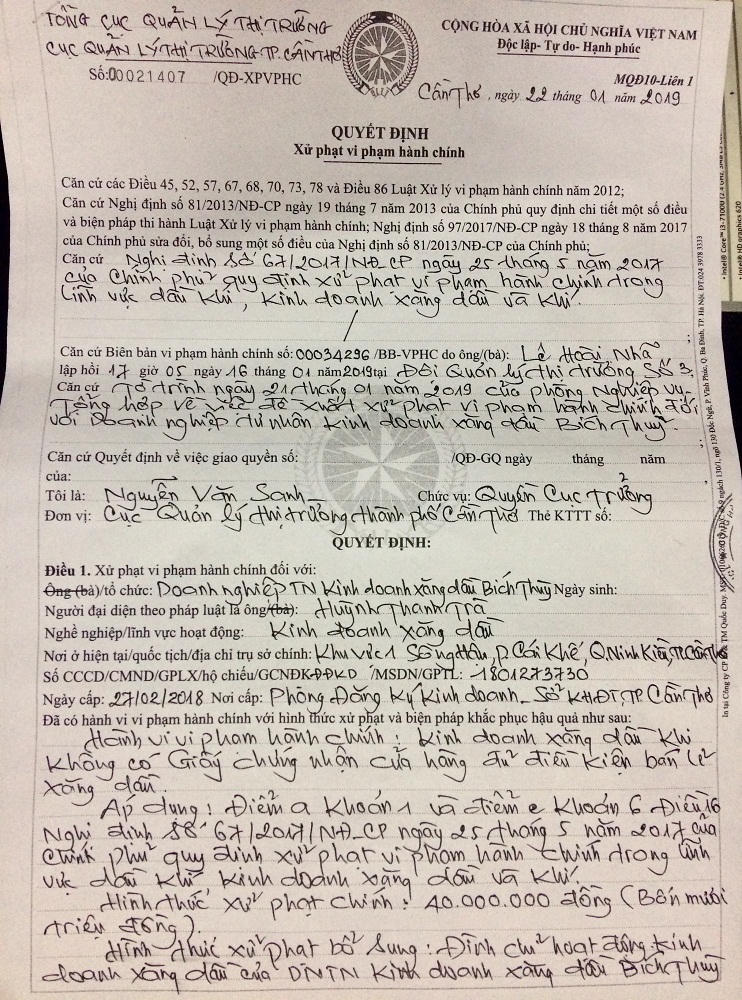 TỔNG CỤC QUẢN LÝ THỊ TRƯỜNG
CỤC QUẢN LÝ THỊ TRƯỜNG TP. CẦN THƠ
Số: 00021407 /QĐ-XPVPHC
CỘNG HÒA XÃ HỘI CHỦ NGHĨA VIỆT NAM
Độc lập- Tự do- Hạnh phúc
MQĐ10-Liên 1
Cần Thơ, ngày 22 tháng 01 năm 2019
QUYẾT ĐỊNH
Xử phạt vi phạm hành chính
Căn cứ các Điều 45, 52, 57, 67, 68, 70, 73, 78 và Điều 86 Luật Xử lý vi phạm hành chính năm 2012;
Căn cứ Nghị định số 81/2013/NĐ-CP ngày 19 tháng 7 năm 2013 của Chính phủ quy định chi tiết một số điều
và biện pháp thi hành Luật Xử lý vi phạm hành chính; Nghị định số 97/2017/NĐ-CP ngày 18 tháng 8 năm 2017
của Chính phủ sửa đổi, bổ sung một số điều của Nghị định số 81/2013/NĐ-CP của Chính phủ;
Căn cứ Nghị định số 67/2017/NĐ_CP ngày 25 tháng 5 năm 2017
của Chính phủ quy định xử phạt vi phạm hành chính trong
lĩnh vực dầu khí, kinh doanh xăng dầu và khí.
Căn cứ Biên bản vi phạm hành chính số: 00034296 /BB-VPHC do ông/(bà): Lê Hoài Nhã
lập hồi 17 giờ 05 ngày 16 tháng 01 năm 2019 tại Đội Quản lý thị trường số 3.
Căn cứ Tờ trình ngày 21 tháng 01 năm 2019 của phòng Nghiệp vụ
Tổng hợp về việc đề xuất xử phạt vi phạm hành chính đối
với Doanh nghiệp tư nhân kinh doanh xăng dầu Bích Thuỷ.
Căn cứ Quyết định về việc giao quyền số: /QĐ-GQ ngày tháng năm
của:
Tôi là: Nguyễn Văn Sanh Chức vụ: Quyền Cục trưởng
Đơn vị: Cục Quản lý thị trường thành phố Cần Thơ Thẻ KTTT số:
QUYẾT ĐỊNH:
Điều 1. Xử phạt vi phạm hành chính đối với:
Ông (bà)/tổ chức: Doanh nghiệp TN kinh doanh xăng dầu Bích Thuỷ Ngày sinh:
Người đại diện theo pháp luật là ông/(bà): Huỳnh Thanh Trà
Nghề nghiệp/lĩnh vực hoạt động: Kinh doanh xăng dầu
Nơi ở hiện tại/quốc tịch/địa chỉ trụ sở chính: Khu vực 1 Sông Hậu, P. Cái Khế, Q. Ninh Kiều, TP. Cần Thơ
Số CCCD/CMND/GPLX/hộ chiếu/GCNĐKĐDKD /MSDN/GPTL: 1801273730
Ngày cấp: 27/02/2018 Nơi cấp: Phòng Đăng ký kinh doanh_ Sở KHĐT, TP. Cần Thơ
Đã có hành vi vi phạm hành chính với hình thức xử phạt và biện pháp khắc phục hậu quả như sau:
Hành vi vi phạm hành chính: Kinh doanh xăng dầu khi
không có Giấy chứng nhận cửa hàng đủ điều kiện bán lẻ
xăng dầu.
Áp dụng: Điểm a khoản 1 và điểm e khoản 6 Điều 16
Nghị định số 67/2017/NĐ_CP ngày 25 tháng 5 năm 2017 của
Chính phủ quy định xử phạt vi phạm hành chính trong lĩnh
vực dầu khí kinh doanh xăng dầu và khí.
Hình thức xử phạt chính: 40.000.000 đồng (Bốn mươi
triệu đồng).
Hình thức xử phạt bổ sung: Đình chỉ hoạt động kinh
doanh xăng dầu của DNTN kinh doanh xăng dầu Bích Thuỷ